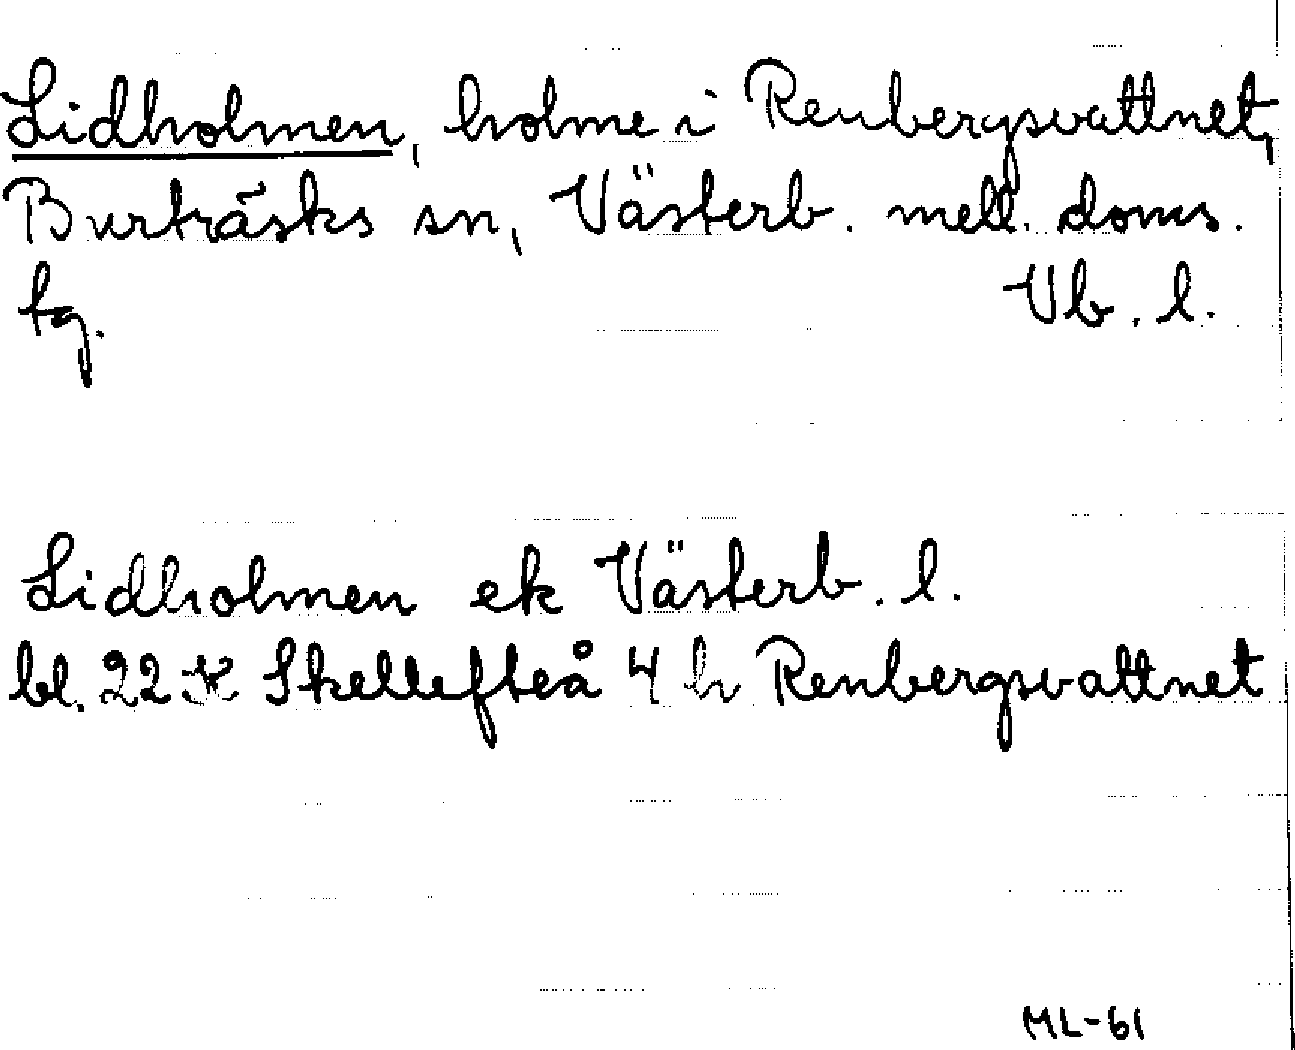 Lidholmen, holme i Renbergsvattnet,
Burträsks sn, Västerb. mell. doms.
tg. Vb. l.
Lidholmen ek Västerb. l.
bl. 22 K Skellefteå 4 h Renbergsvattnet
ML-61